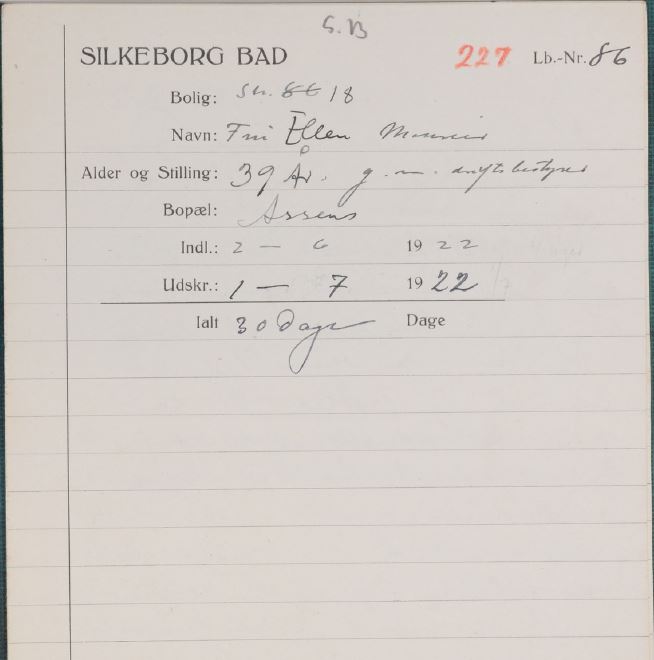 S.B
SILKEBORG BAD 227 Lb.-Nr. 86
Bolig: St. 86 18
Navn: Fru Ellen
Alder og Stilling: 39 År. g. m. driftsbestyrer
Bopæl: Assens
Indl.: 2 — 6 1922
Udskr.: 1 — 7 1922
Ialt 30 Dage Dage